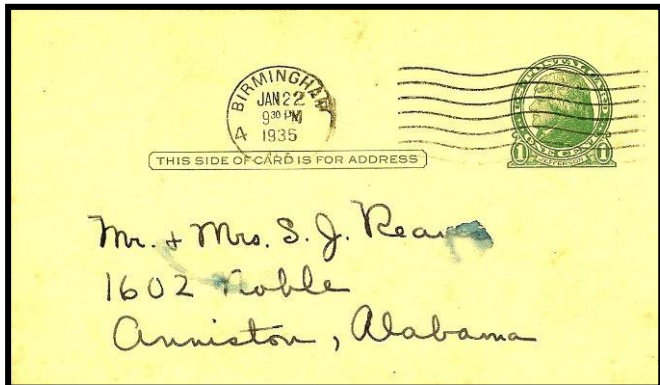 BIRMINGHAM
JAN 22
9³⁰ PM
1935
A
THIS SIDE OF CARD IS FOR ADDRESS
1 JEFFERSON 1
Mr. + Mrs. S. J.
1602 Noble
Anniston, Alabama